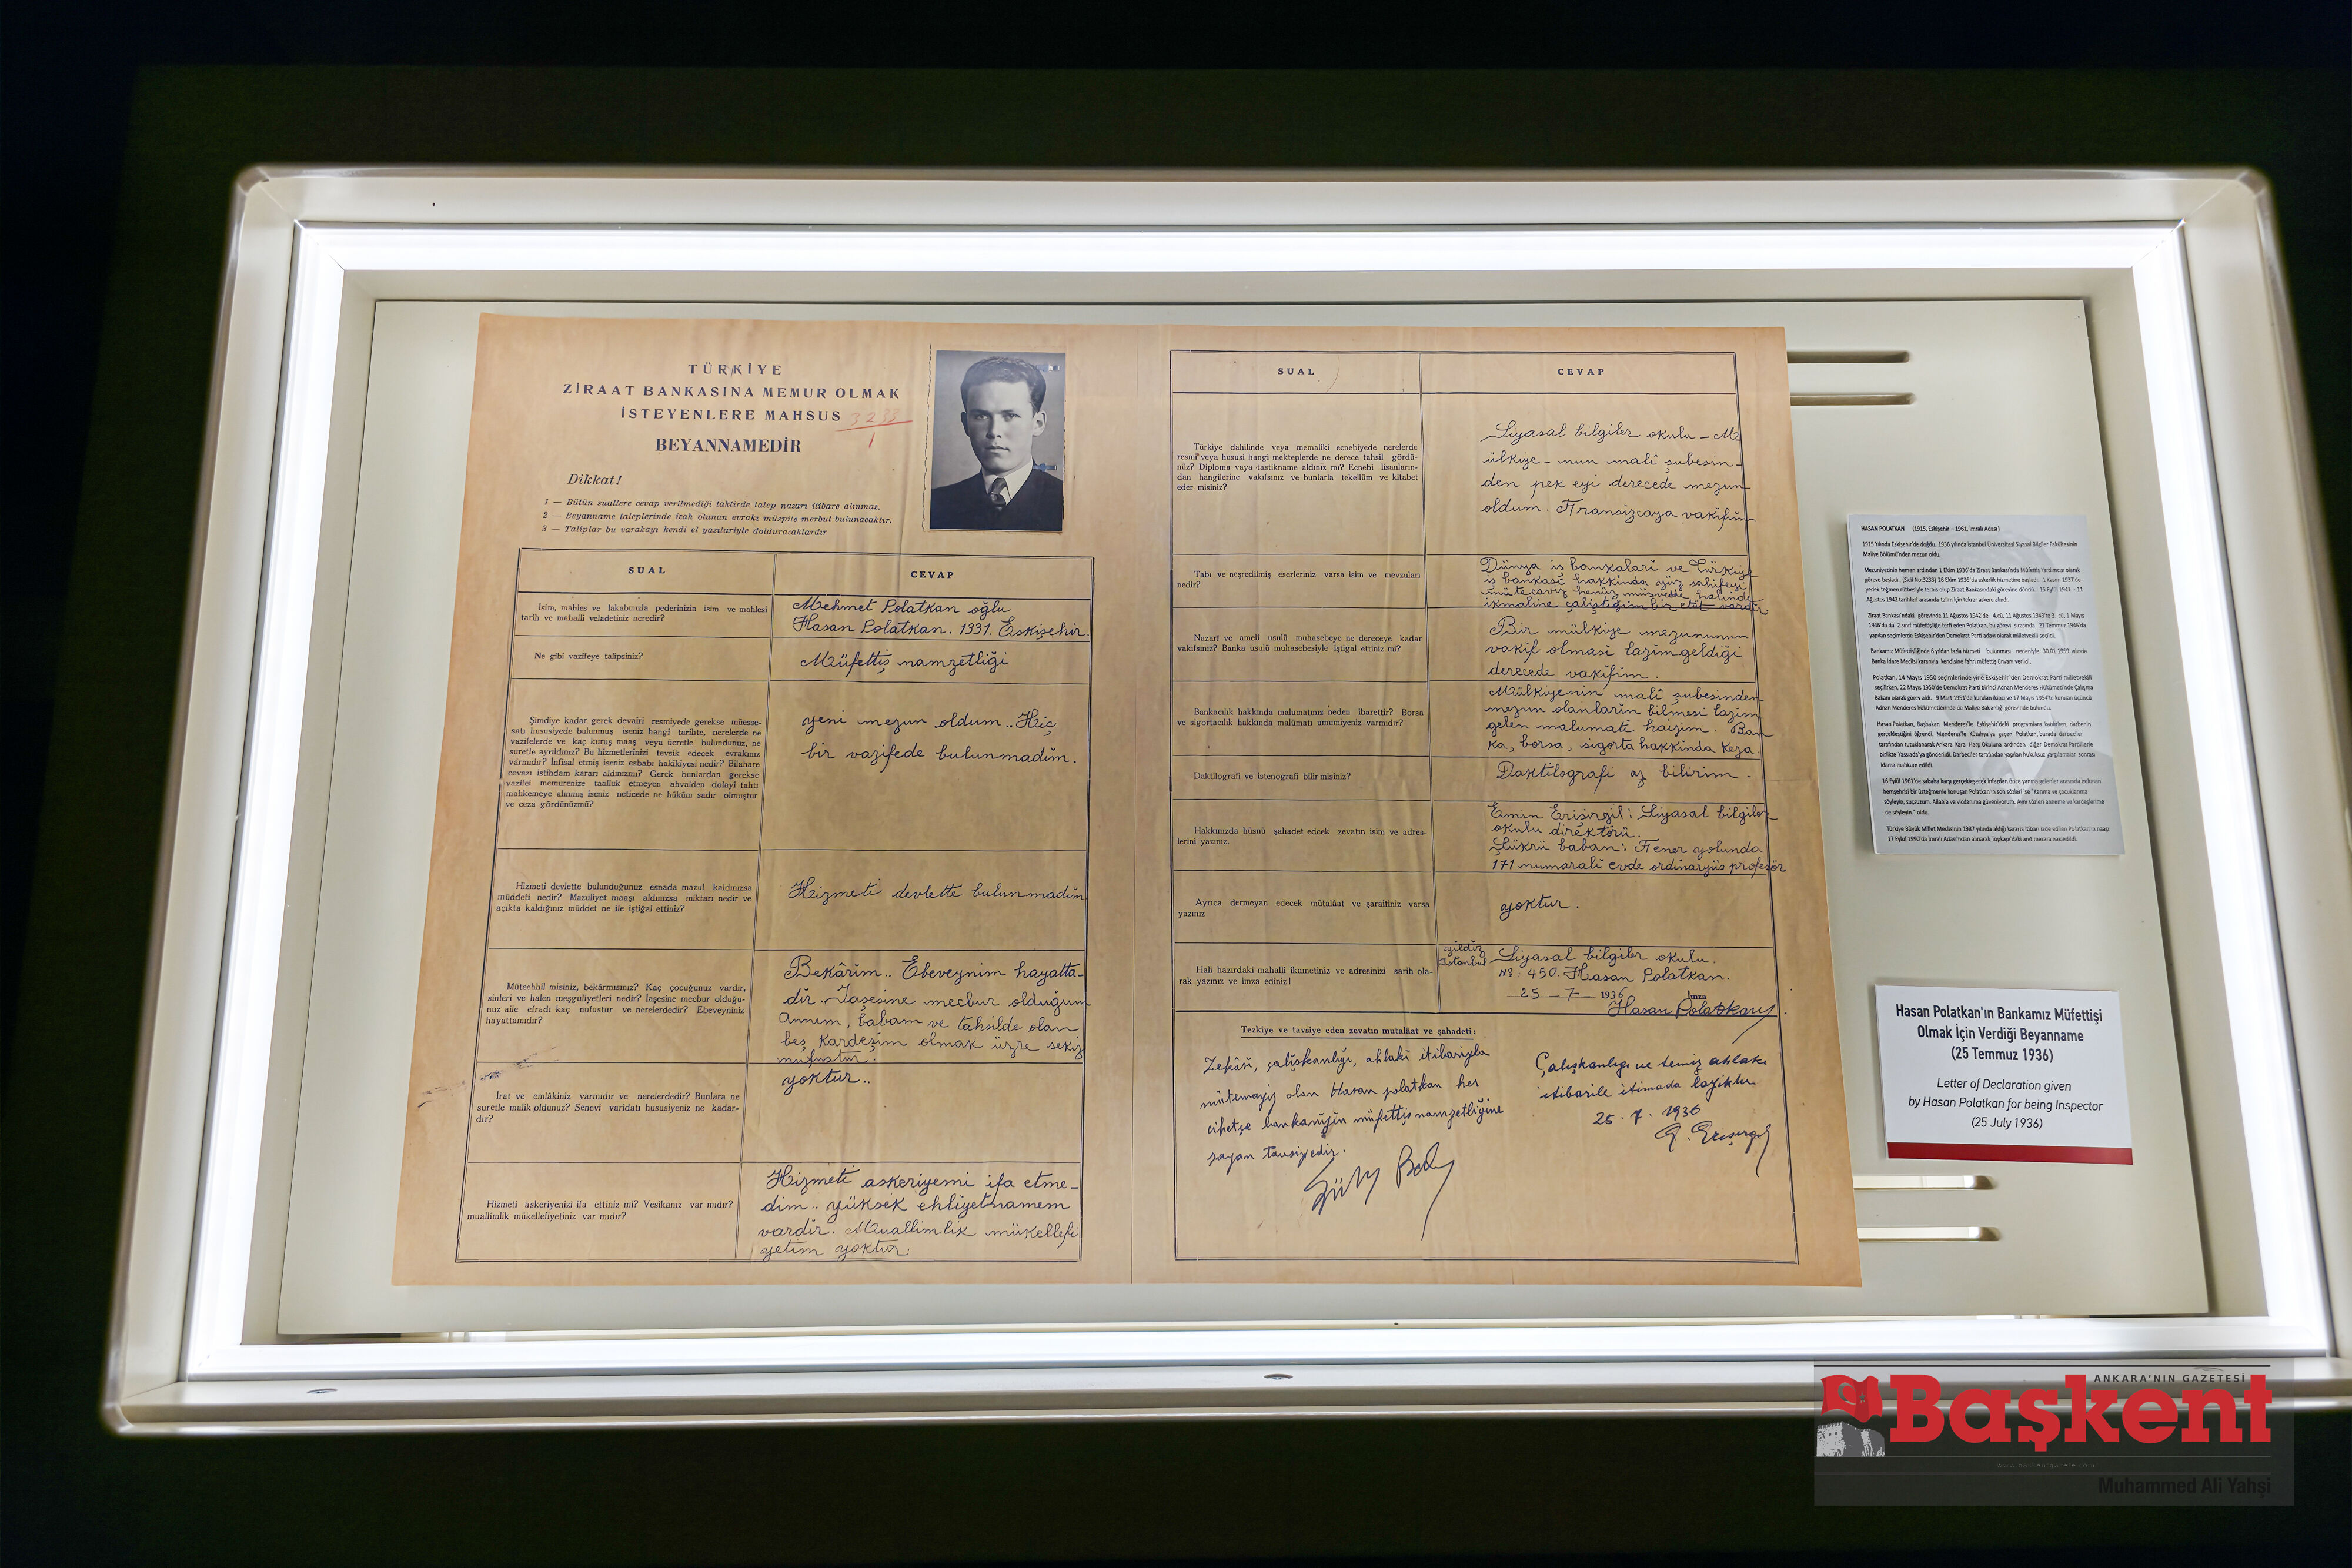 TÜRKİYE
ZİRAAT BANKASINA MEMUR OLMAK
İSTEYENLERE MAHSUS
3233
1
BEYANNAMEDİR
Dikkat!
1 — Bütün suallere cevap verilmediği taktirde talep nazarı itibare alınmaz.
2 — Beyanname taleplerinde izah olunan evrakı müspite merbut bulunacaktır.
3 — Taliplar bu varakayı kendi el yazılariyle dolduracaklardır
SUAL
CEVAP
İsim, mahles ve lakabınızla pederinizin isim ve mahlesi
tarih ve mahalli veladetiniz neredir?
Mehmet Polatkan oğlu
Hasan Polatkan. 1331. Eskişehir.
Ne gibi vazifeye talipsiniz?
Müfettiş namzetliği
Şimdiye kadar gerek devairi resmiyede gerekse müesse-
satı hususiyede bulunmuş iseniz hangi tarihte, nerelerde ne
vazifelerde ve kaç kuruş maaş veya ücretle bulundunuz, ne
suretle ayrıldınız? Bu hizmetlerinizi tevsik edecek evrakınız
varmıdır? İnfisal etmiş iseniz esbabı hakikiyesi nedir? Bilahare
cevazı istihdam kararı aldınızmı? Gerek bunlardan gerekse
vazifei memurenize taalluk etmeyen ahvalden dolayi tahtı
mahkemeye alınmış iseniz neticede ne hüküm sadır olmuştur
ve ceza gördünüzmü?
yeni mezun oldum.. Hiç
bir vazifede bulunmadım.
Hizmeti devlette bulunduğunuz esnada mazul kaldınızsa
müddeti nedir? Mazuliyet maaşı aldınızsa miktarı nedir ve
açıkta kaldığınız müddet ne ile iştiğal ettiniz?
Hizmeti devlette bulunmadım
Müteehhil misiniz, bekârmısınız? Kaç çocuğunuz vardır,
sinleri ve halen meşguliyetleri nedir? İaşesine mecbur olduğu-
nuz aile efradı kaç nufustur ve nerelerdedir? Ebeveyniniz
hayattamıdır?
Bekârim.. Ebeveynim hayatta-
dir. İaşesine mecbur olduğum
Annem, babam ve tahsilde olan
beş kardeşim olmak üzre sekiz
nüfustur.
İrat ve emlâkiniz varmıdır ve nerelerdedir? Bunlara ne
suretle malik oldunuz? Senevi varidatı hususiyeniz ne kadar-
dır?
yoktur..
Hizmeti askeriyenizi ifa ettiniz mi? Vesikanız var mıdır?
muallimlik mükellefiyetiniz var mıdır?
Hizmeti askeriyemi ifa etme-
dim.. yüksek ehliyetnamem
vardir. Muallimlik mükellefi
yetim yoktur.
SUAL
CEVAP
Türkiye dahilinde veya memaliki ecnebiyede nerelerde
resmî veya hususi hangi mekteplerde ne derece tahsil gördü-
nüz? Diploma vaya tastikname aldınız mı? Ecnebi lisanların-
dan hangilerine vakıfsınız ve bunlarla tekellüm ve kitabet
eder misiniz?
Siyasal bilgiler okulu – M
ülkiye – nun malî şubesin-
den pek eyi derecede mezun
oldum. Fransizcaya vakifim
Tabı ve neşredilmiş eserleriniz varsa isim ve mevzuları
nedir?
Dünya iş bankalari ve Türkiye
iş bankasi hakkinda yüz sahifeyi
mütecaviz henüz müsvedde halinde
ikmaline çaliştiğim bir etüt vardir
Nazarî ve amelî usulü muhasebeye ne dereceye kadar
vakıfsınız? Banka usulü muhasebesiyle iştigal ettiniz mi?
Bir mülkiye mezununun
vakif olmasi lazimgeldiği
derecede vakifim.
Bankacılık hakkında malumatınız neden ibarettir? Borsa
ve sigortacılık hakkında malûmatı umumiyeniz varmıdır?
Mülkiyenin malî şubesinden
mezun olanlarin bilmesi lazim
gelen malumati haizim. Ban
ka, borsa, sigorta hakkinda keza.
Daktilografi ve İstenografi bilir misiniz?
Daktilografi az bilirim.
Hakkınızda hüsnü şahadet edcek zevatın isim ve adres-
lerini yazınız.
Emin Erişirgil: Siyasal bilgiler
okulu direktörü.
Şükrü baban: Fener yolunda
171 numarali evde ordinaryüs profesör
Ayrıca dermeyan edecek mütalâat ve şaraitiniz varsa
yazınız
yoktur.
Hali hazırdaki mahalli ikametiniz ve adresinizi sarih ola-
rak yazınız ve imza ediniz!
yildiz
İstanbul
Siyasal bilgiler okulu.
No: 450. Hasan Polatkan.
25 – 7 – 1936
İmza
Hasan Polatkan
Tezkiye ve tavsiye eden zevatın mutalâat ve şahadeti:
Zekâsi, çalişkanlığı, ahlaki itibariyla
mütemayiz olan Hasan polatkan her
cihetçe bankanizin müfettiş namzetliğine
şayan tavsiyedir.
Çalışkanlığı ve temiz ahlakı
itibarile itimada layiktır
25 . 7 . 1936
HASAN POLATKAN (1915, Eskişehir – 1961, İmralı Adası)
1915 Yılında Eskişehir'de doğdu. 1936 yılında İstanbul Üniversitesi Siyasal Bilgiler Fakültesinin
Maliye Bölümü'nden mezun oldu.
Mezuniyetinin hemen ardından 1 Ekim 1936'da Ziraat Bankası'nda Müfettiş Yardımcısı olarak
göreve başladı. (Sicil No:3233) 26 Ekim 1936'da askerlik hizmetine başladı. 1 Kasım 1937'de
yedek teğmen rütbesiyle terhis olup Ziraat Bankasındaki görevine döndü. 15 Eylül 1941 - 11
Ağustos 1942 tarihleri arasında talim için tekrar askere alındı.
Ziraat Bankası'ndaki görevinde 11 Ağustos 1942'de 4.cü, 11 Ağustos 1943'te 3. cü, 1 Mayıs
1946'da da 2.sınıf müfettişliğe terfi eden Polatkan, bu görevi sırasında 21 Temmuz 1946'da
yapılan seçimlerde Eskişehir'den Demokrat Parti adayı olarak milletvekili seçildi.
Bankamız Müfettişliğinde 6 yıldan fazla hizmeti bulunması nedeniyle 30.01.1959 yılında
Banka İdare Meclisi kararıyla kendisine fahri müfettiş ünvanı verildi.
Polatkan, 14 Mayıs 1950 seçimlerinde yine Eskişehir'den Demokrat Parti milletvekili
seçilirken, 22 Mayıs 1950'de Demokrat Parti birinci Adnan Menderes Hükümeti'nde Çalışma
Bakanı olarak görev aldı. 9 Mart 1951'de kurulan ikinci ve 17 Mayıs 1954'te kurulan üçüncü
Adnan Menderes hükümetlerinde de Maliye Bakanlığı görevinde bulundu.
Hasan Polatkan, Başbakan Menderes'le Eskişehir'deki programlara katılırken, darbenin
gerçekleştiğini öğrendi. Menderes'le Kütahya'ya geçen Polatkan, burada darbeciler
tarafından tutuklanarak Ankara Kara Harp Okuluna ardından diğer Demokrat Partililerle
birlikte Yassıada'ya gönderildi. Darbeciler tarafından yapılan hukuksuz yargılamalar sonrası
idama mahkum edildi.
16 Eylül 1961'de sabaha karşı gerçekleşecek infazdan önce yanına gelenler arasında bulunan
hemşehrisi bir üsteğmenle konuşan Polatkan'ın son sözleri ise "Karıma ve çocuklarıma
söyleyin, suçsuzum. Allah'a ve vicdanıma güveniyorum. Aynı sözleri anneme ve kardeşlerime
de söyleyin." oldu.
Türkiye Büyük Millet Meclisinin 1987 yılında aldığı kararla itibarı iade edilen Polatkan'ın naaşı
17 Eylül 1990'da İmralı Adası'ndan alınarak Topkapı'daki anıt mezara nakledildi.
Hasan Polatkan'ın Bankamız Müfettişi
Olmak İçin Verdiği Beyanname
(25 Temmuz 1936)
Letter of Declaration given
by Hasan Polatkan for being Inspector
(25 July 1936)
ANKARA'NIN GAZETESİ
Başkent
www.baskentgazete.com
Muhammed Ali Yahşi